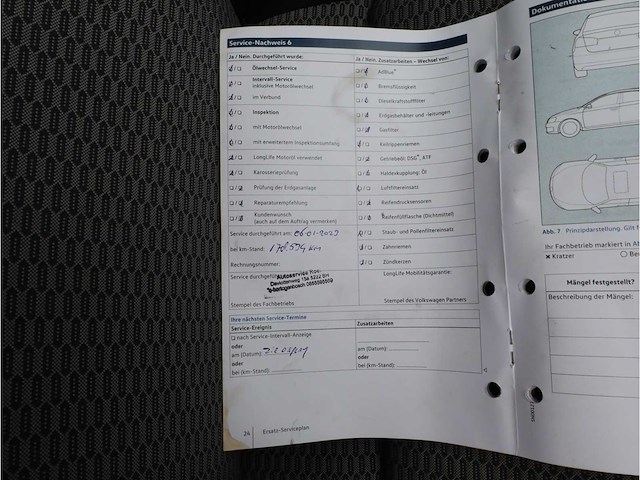 Service-Nachweis 6
Ja / Nein, Durchgeführt wurde:
Ölwechsel-Service
Intervall-Service
inklusive Motorölwechsel
im Verbund
Inspektion
mit Motorölwechsel
mit erweitertem Inspektionsumfang
LongLife Motoröl verwendet
Karosserieprüfung
Prüfung der Erdgasanlage
Reparaturempfehlung
Kundenwunsch
(auch auf dem Auftrag vermerken)
Service durchgeführt am: 06-01-2023
bei km-Stand: 178.534 km
Rechnungsnummer:
Service durchgeführt
Autoservice
Stempel des Fachbetriebs
Ja / Nein, Zusatzarbeiten – Wechsel von:
AdBlue®
Bremsflüssigkeit
Dieselkraftstofffilter
Erdgasbehälter und -leitungen
Gasfilter
Keilrippenriemen
Getriebeöl: DSG®, ATF
Haldexkupplung: Öl
Luftfiltereinsatz
Reifendrucksensoren
Reifenfüllflasche (Dichtmittel)
Staub- und Pollenfiltereinsatz
Zahnriemen
Zündkerzen
LongLife Mobilitätsgarantie:
Stempel des Volkswagen Partners
Ihre nächsten Service-Termine
Service-Ereignis
nach Service-Intervall-Anzeige
oder
am (Datum):
oder
bei (km-Stand):
Zusatzarbeiten
am (Datum):
oder
bei (km-Stand):
24 Ersatz-Serviceplan
Dokumentation
Abb. 7 Prinzipdarstellung. Gilt f
Ihr Fachbetrieb markiert in Ab
× Kratzer
Mängel festgestellt?
Beschreibung der Mängel: